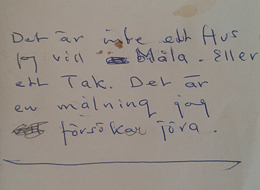 Det är inte ett Hus
jag vill Måla. Eller
ett Tak. Det är
en målning jag
försöker jöra.